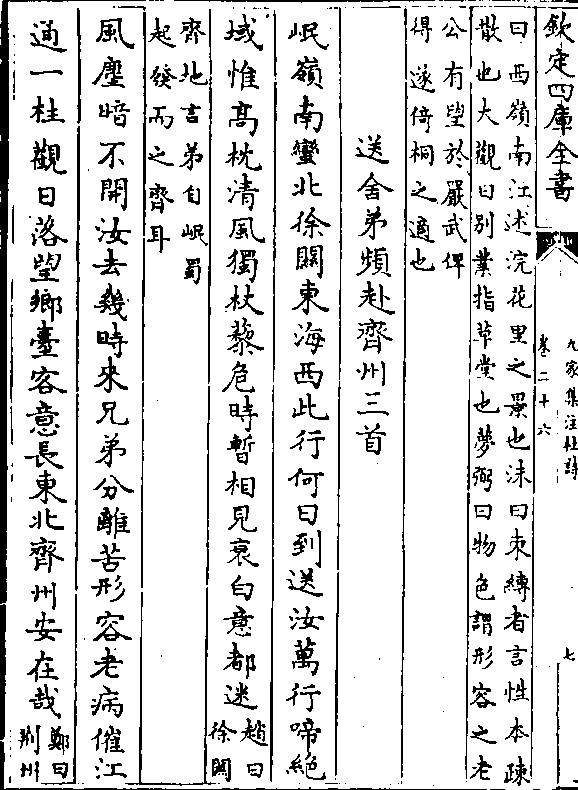 欽定四庫全書
九家集注杜詩
卷二十六
七
曰西嶺南江述浣花里之景也沬曰束縛者言性本疎
散也大觀曰别業指草堂也夢弼曰物色謂形容之老
公有望於嚴武俾
得遂倚桐之適也
送舍弟頻赴齊州三首
岷嶺南蠻北徐關東海西此行何日到送汝萬行啼絶
域惟高枕清風獨杖藜危時暫相見衰白意都迷
趙曰
徐關
齊地言弟自岷蜀
起發而之齊耳
風塵暗不開汝去幾時來兄弟分離苦形容老病催江
通一柱觀日落望鄉臺客意長東北齊州安在哉
鄭曰
荆州